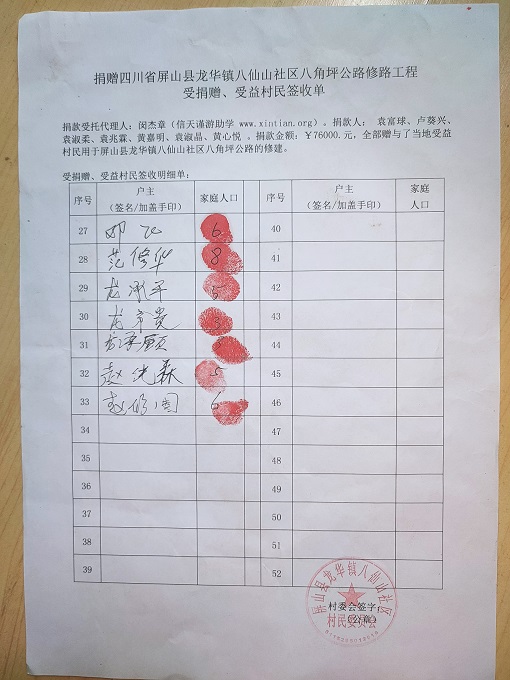 捐赠四川省屏山县龙华镇八仙山社区八角坪公路修路工程
受捐赠、受益村民签收单
捐款受托代理人：闵杰章（信天谨游助学 www.xintian.org）。捐款人： 袁富球、卢葵兴、
袁淑柔、袁兆霖、黄嘉明、袁淑晶、黄心悦 。捐款金额：￥76000.元，全部赠与了当地受益
村民用于屏山县龙华镇八仙山社区八角坪公路的修建。
受捐赠、受益村民签收明细单：
序号 户主 家庭人口 序号 户主 家庭
（签名/加盖手印） （签名/加盖手印） 人口
27 邓 6 40
28 范修华 8 41
29 龙 平 5 42
30 龙 贵 3 43
31 44
32 赵 森 5 45
33 赵修 6 46
34 47
35 48
36 49
37 50
38 51
39 52
屏山县龙华镇八仙山社区
村民委员会
村委会签字：
（公章）